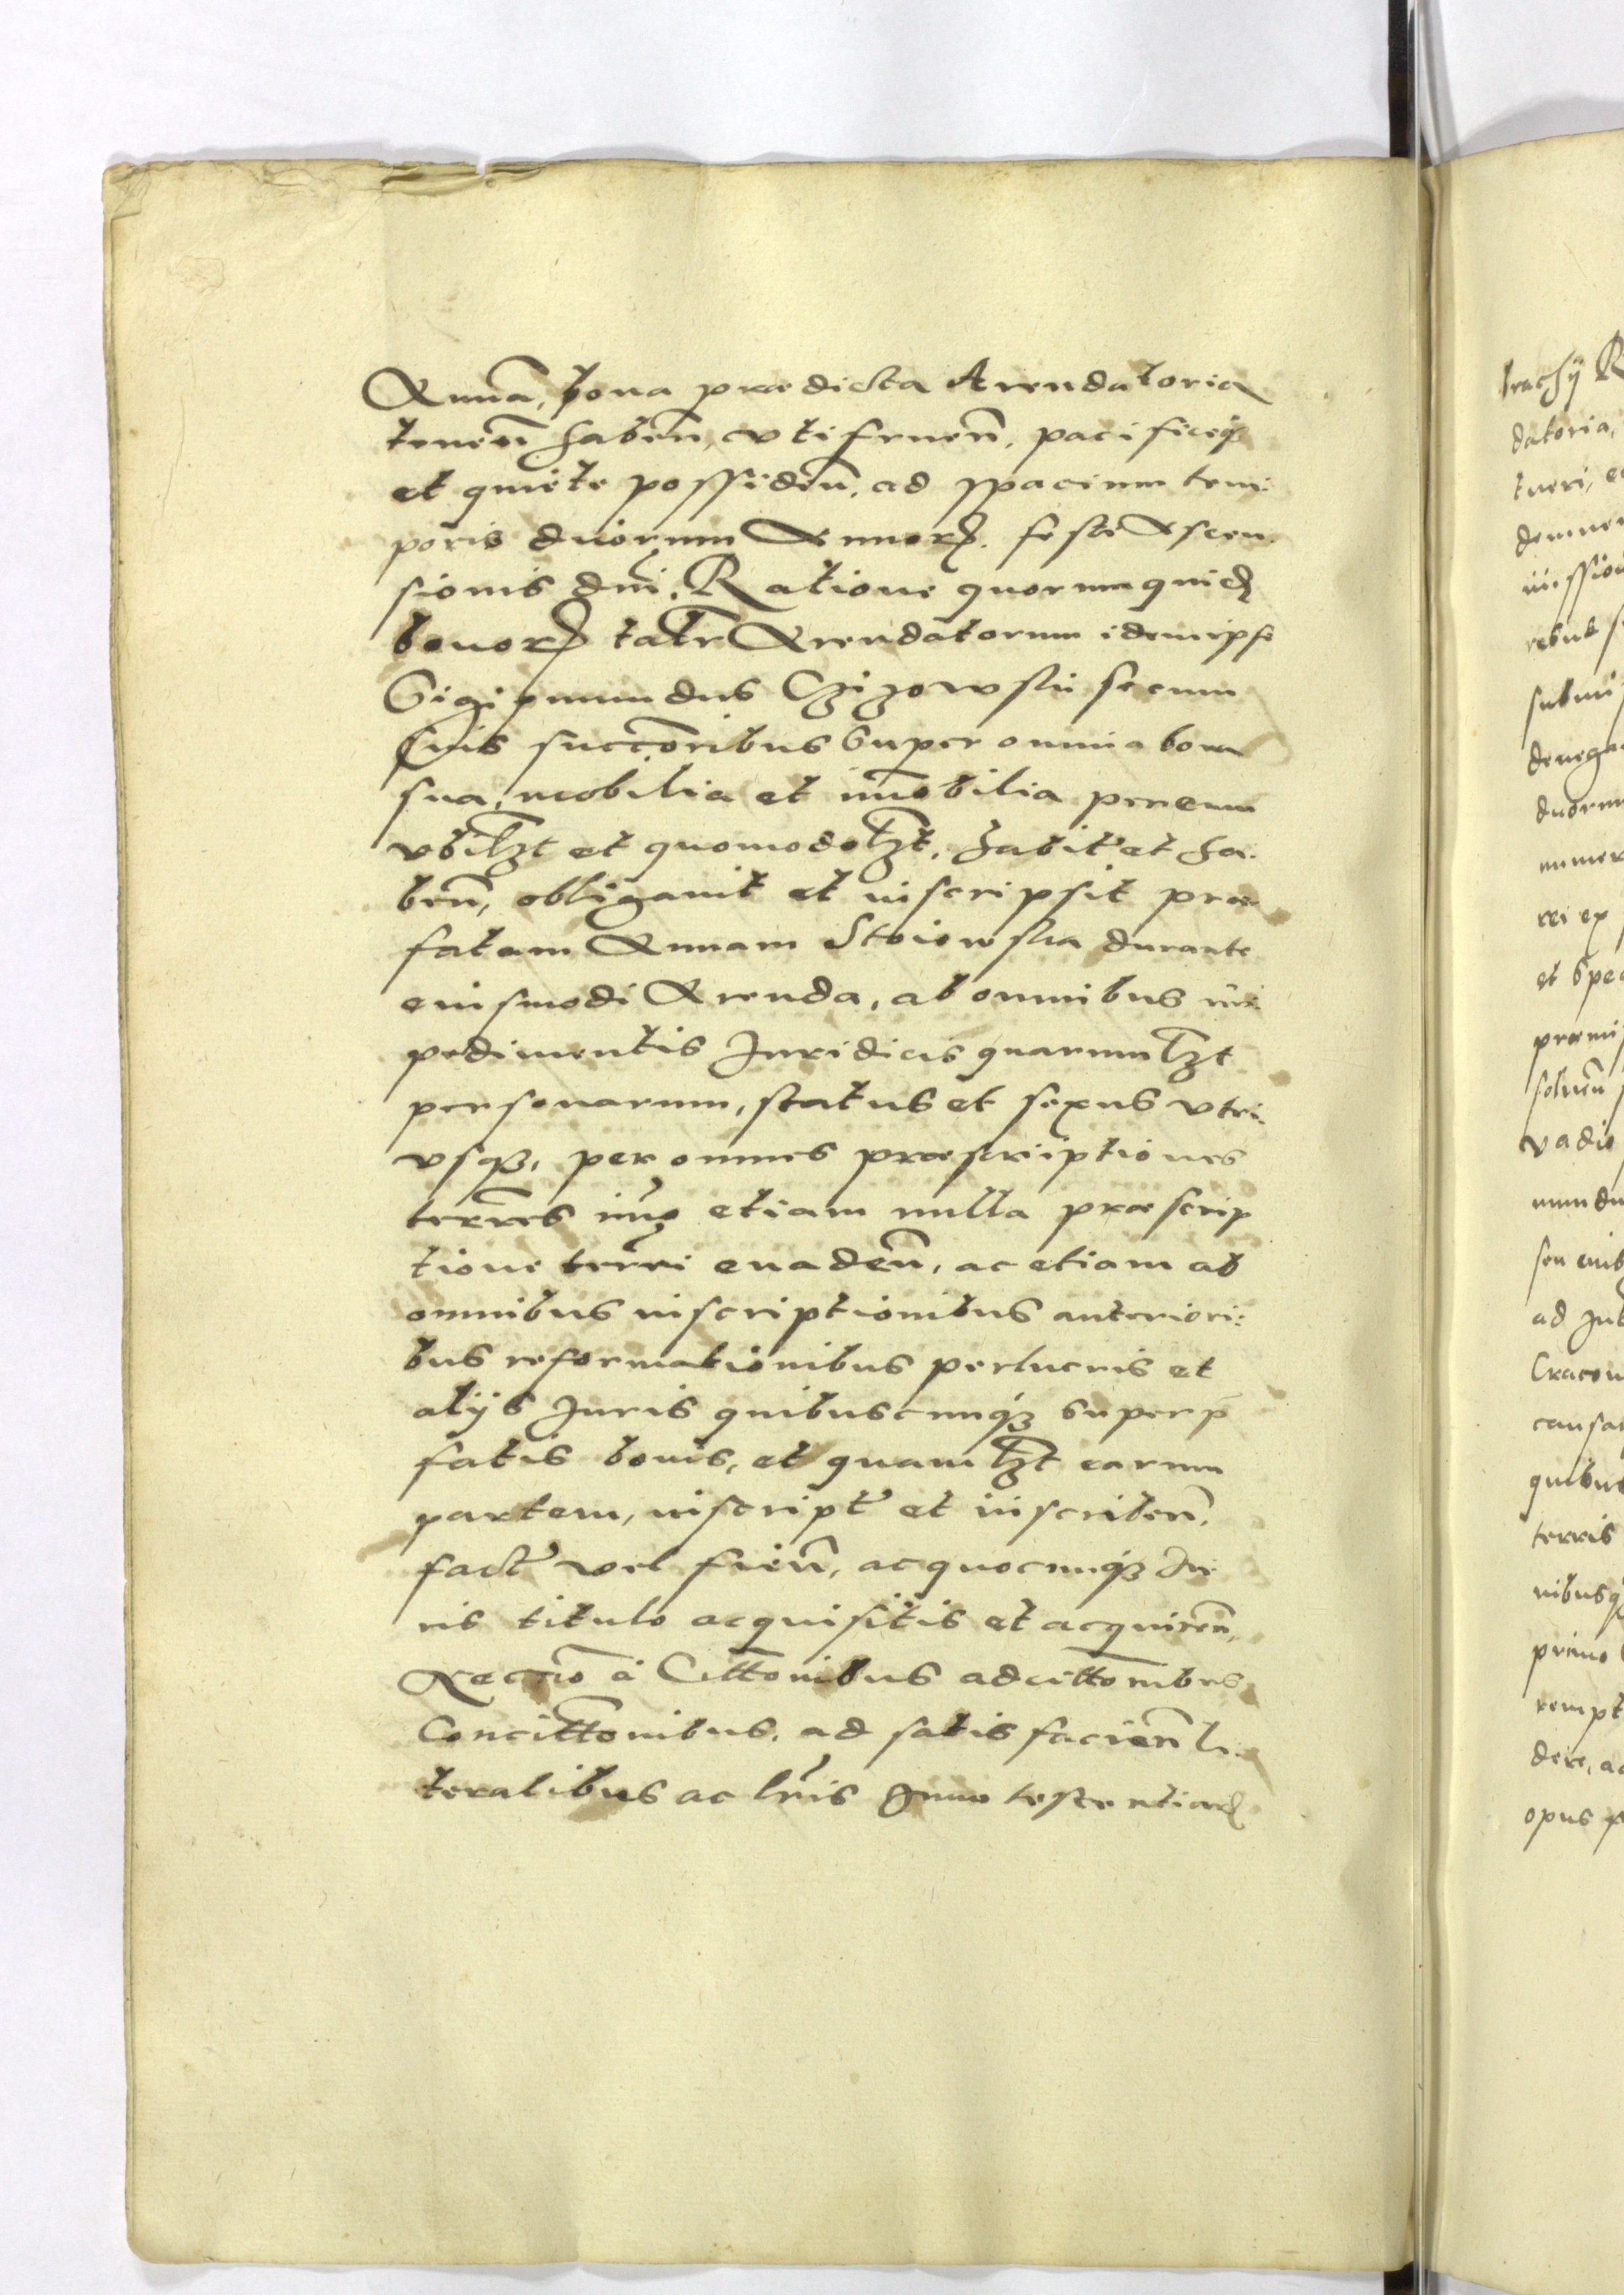 Anna, bona prædicta Arendatoria
tenen̄ haben̄, uti fruen̄, pacificeq̃
et quiete possiden̄, ad spacium tem:
poris duorum Annorꝝ. festi Ascen:
sionis dnī. Ratione quorum quid̃
bonorꝝ talr̄ Arendatorum idem ipse
Sigismundus Czizowsky secum
suis succ̄oribus super omnia bona
sua, mobilia et im̄obilia per eum
vbilꝫt et quomodolꝫt, habit̃ et ha:
ben̄, obligauit et inscripsit præ
fatam Annam Stoiowska durante
eiusmodi Arenda, ab omnibus im:
pedimentis Juridicis quarumlꝫt
personarum, status et sexus vtri:
vsqꝫ, per omnes præscriptiones
terrēs im̄o etiam nulla præscrip
tione terrēi euaden̄, ac etiam ab
omnibus inscriptionibus anteriori:
bus reformationibus perlucris et
alijs Juris quibuscunqꝫ super p̄
fatis bonis, et quamlꝫt earum
partem, inscript̃ et inscriben̄,
fact̃ vel fien̄, ac quocunqꝫ Ju
ris titulo acquisitis et acquiren̄,
Necn̄o à Cittōnibus adcittōnibus
Concittōnibus, ad satisfacien̄ li:
teralibus ac lrīs Innotescentiarꝝ
brachij
datoria,
tueri, e
demne
missio
rebus
submi
denega
duorum
numer
rei ex
et Spe
præmi
soluen̄
vadio
mundu
seu
ad Jud
Cracou
causa
quibus
terris
nibusq
primo
rempt
dere, a
opus p